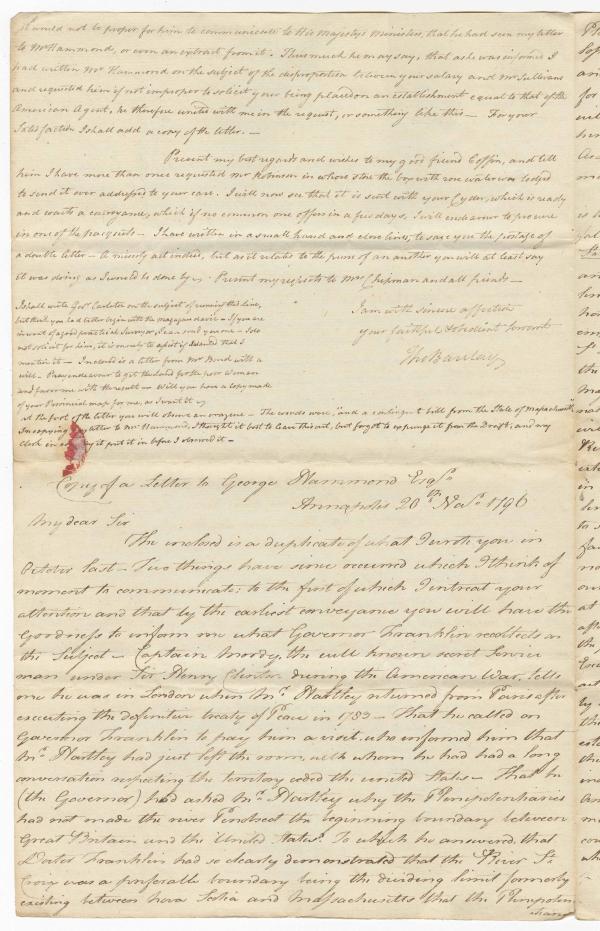 should not to proper for him to communicate to His Majestys Ministers, that he had seen my letter
to Mr Hammond, or even an extract from it. Thus much he may say, that as he was informed I
had written Mr Hammond on the subject of the disproportion between your salary and Mr Sullivans
and requested him if not improper to solicit your being placed on an establishment equal to that of the
American Agent, he therefore united with me in the request, or something like this — For your
Satisfaction I shall add a copy of the letter. —
Present my best regards and wishes to my good friend Coffin, and tell
him I have more than once requested Mr Robinson in whose store the box with rose water was lodged
to send it over addressed to your care. I will now see that it is sent with your Cyder, which is ready
and waits a conveyance, which if no common one offers in a few days, I will endeavour to procure
in one of the pacquets — I have written in a small hand and close lines, to save you the postage of
a double letter — A miserly act indeed, but as it relates to the purse of another you will at least say
it was doing as I would be done by. Present my respects to Mrs Chipman and all friends —
I am with sincere affection
your faithful & obedient servant
Tho Barclay
I shall write Govr Carleton on the subject of running the line,
but think you had better begin with the magaguadavic — If you are
in want of a good practical Surveyor, I can send you one — I do
not solicit for him, it is merely to assist if desired that I
mention it — Inclosed is a letter from Mr Bond with a
will — Pray endeavour to get the land for the poor Woman
and favor me with the result — Will you have a copy made
of your Provincial map for me, as I want it
at the foot of the letter you will observe an erazure — The words were, "and a contingent bill from the State of Massachusetts"
In copying letter to Mr Hammond, I thought it best to leave this out, but forgot to expunge it from the Draft, and my
Clerk in it put it in before I observed it —
Copy of a Letter to George Hammond Esqr
Annapolis 20th Nov. 1796
My dear Sir
The enclosed is a duplicate of what I wrote you in
October last — Two things have since occurred which I think of
moment to communicate; to the first of which I intreat your
attention and that by the earliest conveyance you will have the
Goodness to inform me what Governor Franklin recollects on
the Subject — Captain Mordy, the well known secret Service
man under Sir Henry Clinton during the American War, tells
me he was in London when Mr. Hartley returned from Paris after
executing the definitive treaty of Peace in 1783 — That he called on
Governor Franklin to pay him a visit, who informed him that
Mr. Hartley had just left the room, with whom he had had a long
conversation respecting the territory ceded the united States — That he
(the Governor) had asked Mr. Hartley why the Plenipotentiaries
had not made the river Penobscot the beginning boundary between
Great Britain and the United States. To which he answered, that
Doctor Franklin had so clearly demonstrated that the River St.
Croix was a preferable boundary being the dividing limit formerly
existing between Nova Scotia and Massachusetts that the Plenipoten